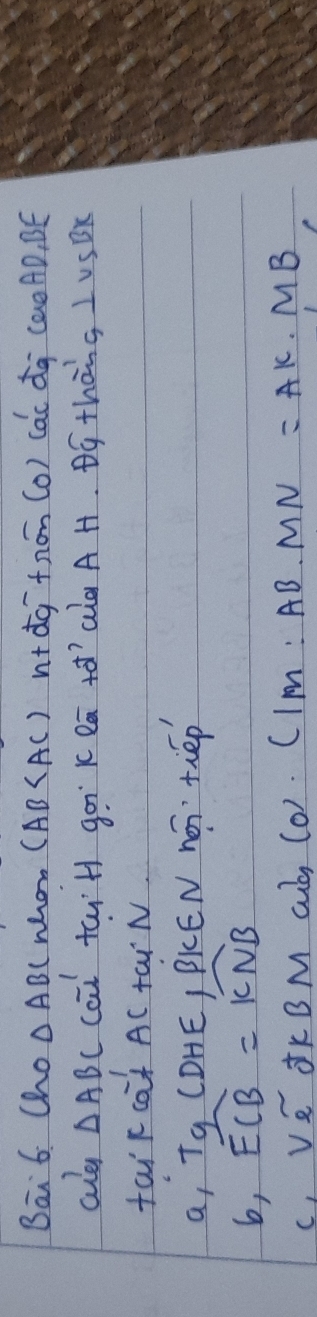 Bài 6. Cho ΔABC nhọn (AB<AC) nt đg tròn (O) các đg cao AD, BE
của ΔABC cắt tại H gọi K là tđ' của AH. Đg thẳng ⊥ vs BK
tại K cắt AC tại N.
a, Tg CDHE, BKEN nội tiếp
b, ECB = KNB
c, Vẽ đk BM của (O). C/m: AB.MN = AK.MB